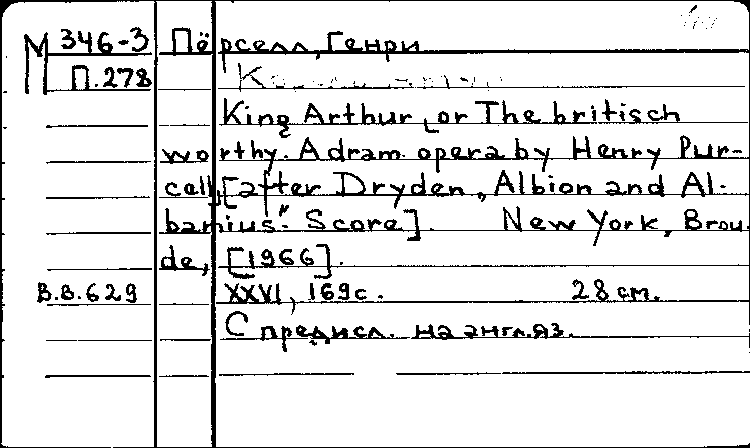 М 346-3 Пёрселл, Генри
П.278
King Arthur, or The britisch
worthy. A dram. opera by Henry Pur-
cell, [after Dryden, „Albion and Al-
banius". Score]. New York, Brou-
de, [1966].
В.В.629 XXVI, 169 с. 28 см.
С предисл. на англ. яз.